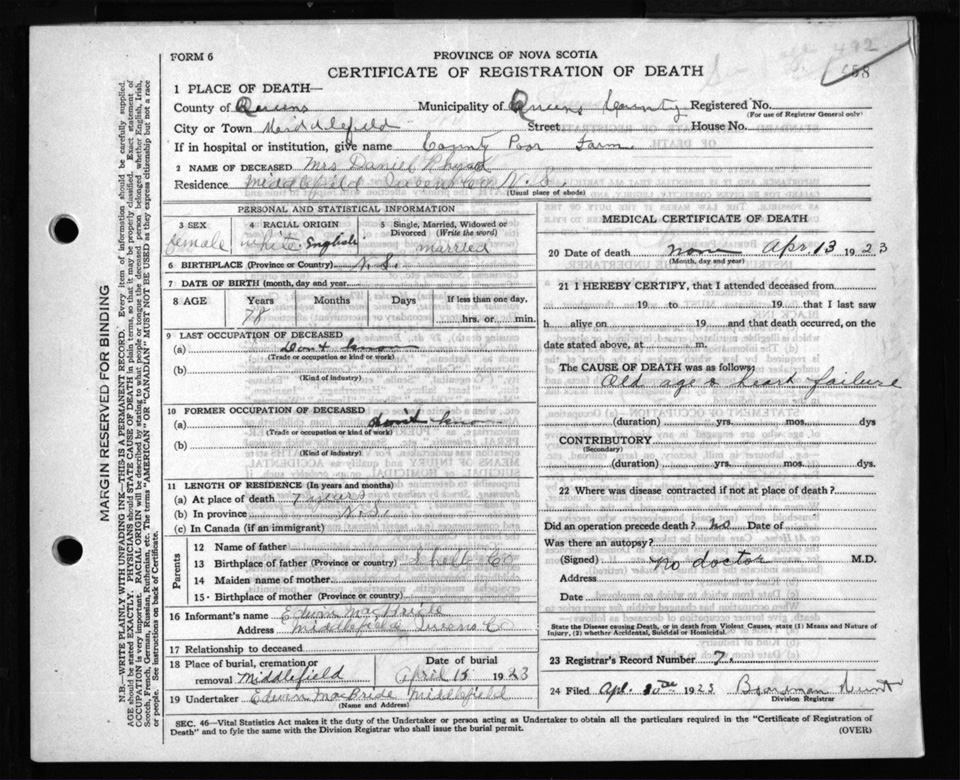 492
FORM 6
PROVINCE OF NOVA SCOTIA
CERTIFICATE OF REGISTRATION OF DEATH
58
1 PLACE OF DEATH—
County of Queens Municipality of Queens County Registered No.
(For use of Registrar General only)
City or Town Middlefield Street House No.
If in hospital or institution, give name County Poor Farm
2 NAME OF DECEASED Mrs Daniel
Residence Middlefield Queens Co N. S.
(Usual place of abode)
PERSONAL AND STATISTICAL INFORMATION
3 SEX female
4 RACIAL ORIGIN white English
5 Single, Married, Widowed or Divorced (Write the word) married
6 BIRTHPLACE (Province or Country) N. S.
7 DATE OF BIRTH (month, day and year)
8 AGE Years Months Days If less than one day,
78 hrs. or min.
9 LAST OCCUPATION OF DECEASED
(a) Dont know
(Trade or occupation or kind of work)
(b)
(Kind of industry)
10 FORMER OCCUPATION OF DECEASED
(a) dont know
(Trade or occupation or kind of work)
(b)
(Kind of industry)
11 LENGTH OF RESIDENCE (In years and months)
(a) At place of death 7 years
(b) In province N. S.
(c) In Canada (if an immigrant)
Parents
12 Name of father
13 Birthplace of father (Province or country) Shelb Co
14 Maiden name of mother
15 Birthplace of mother (Province or country)
16 Informant's name Edwin MacBride
Address Middlefield Queens Co
17 Relationship to deceased
18 Place of burial, cremation or removal Middlefield Date of burial April 15 1923
19 Undertaker Edwin MacBride Middlefield
(Name and Address)
MEDICAL CERTIFICATE OF DEATH
20 Date of death Apr. 13 1923
(Month, day and year)
21 I HEREBY CERTIFY, that I attended deceased from
19 to 19 that I last saw
h alive on 19 and that death occurred, on
date stated above, at m.
The CAUSE OF DEATH was as follows:
Old age & heart failure
(duration) yrs. mos. dys
CONTRIBUTORY
(Secondary)
(duration) yrs. mos. dys.
22 Where was disease contracted if not at place of death?
Did an operation precede death? no Date of
Was there an autopsy?
(Signed) no doctor M.D.
Address
Date
State the Disease causing Death, or in death from Violent Causes, state (1) Means and Nature of
Injury, (2) whether Accidental, Suicidal or Homicidal.
23 Registrar's Record Number 7.
24 Filed Apl. 1923 Boardman Hunt
Division Registrar
SEC. 46—Vital Statistics Act makes it the duty of the Undertaker or person acting as Undertaker to obtain all the particulars required in the "Certificate of Registration of
Death" and to fyle the same with the Division Registrar who shall issue the burial permit.
(OVER)
MARGIN RESERVED FOR BINDING
N.B.—WRITE PLAINLY WITH UNFADING INK—THIS IS A PERMANENT RECORD. Every item of information should be carefully supplied.
AGE should be stated EXACTLY. PHYSICIANS should STATE CAUSE OF DEATH in plain terms, so that it may be properly classified. Exact statement of
OCCUPATION is very important. RACIAL ORIGIN will be described by stating to what people or tongue the deceased person belonged whether English, Irish,
Scotch, French, German, Russian, Ruthenian, etc. The terms "AMERICAN" OR "CANADIAN" MUST NOT BE USED as they express citizenship but not a race
or people. See instructions on back of Certificate.